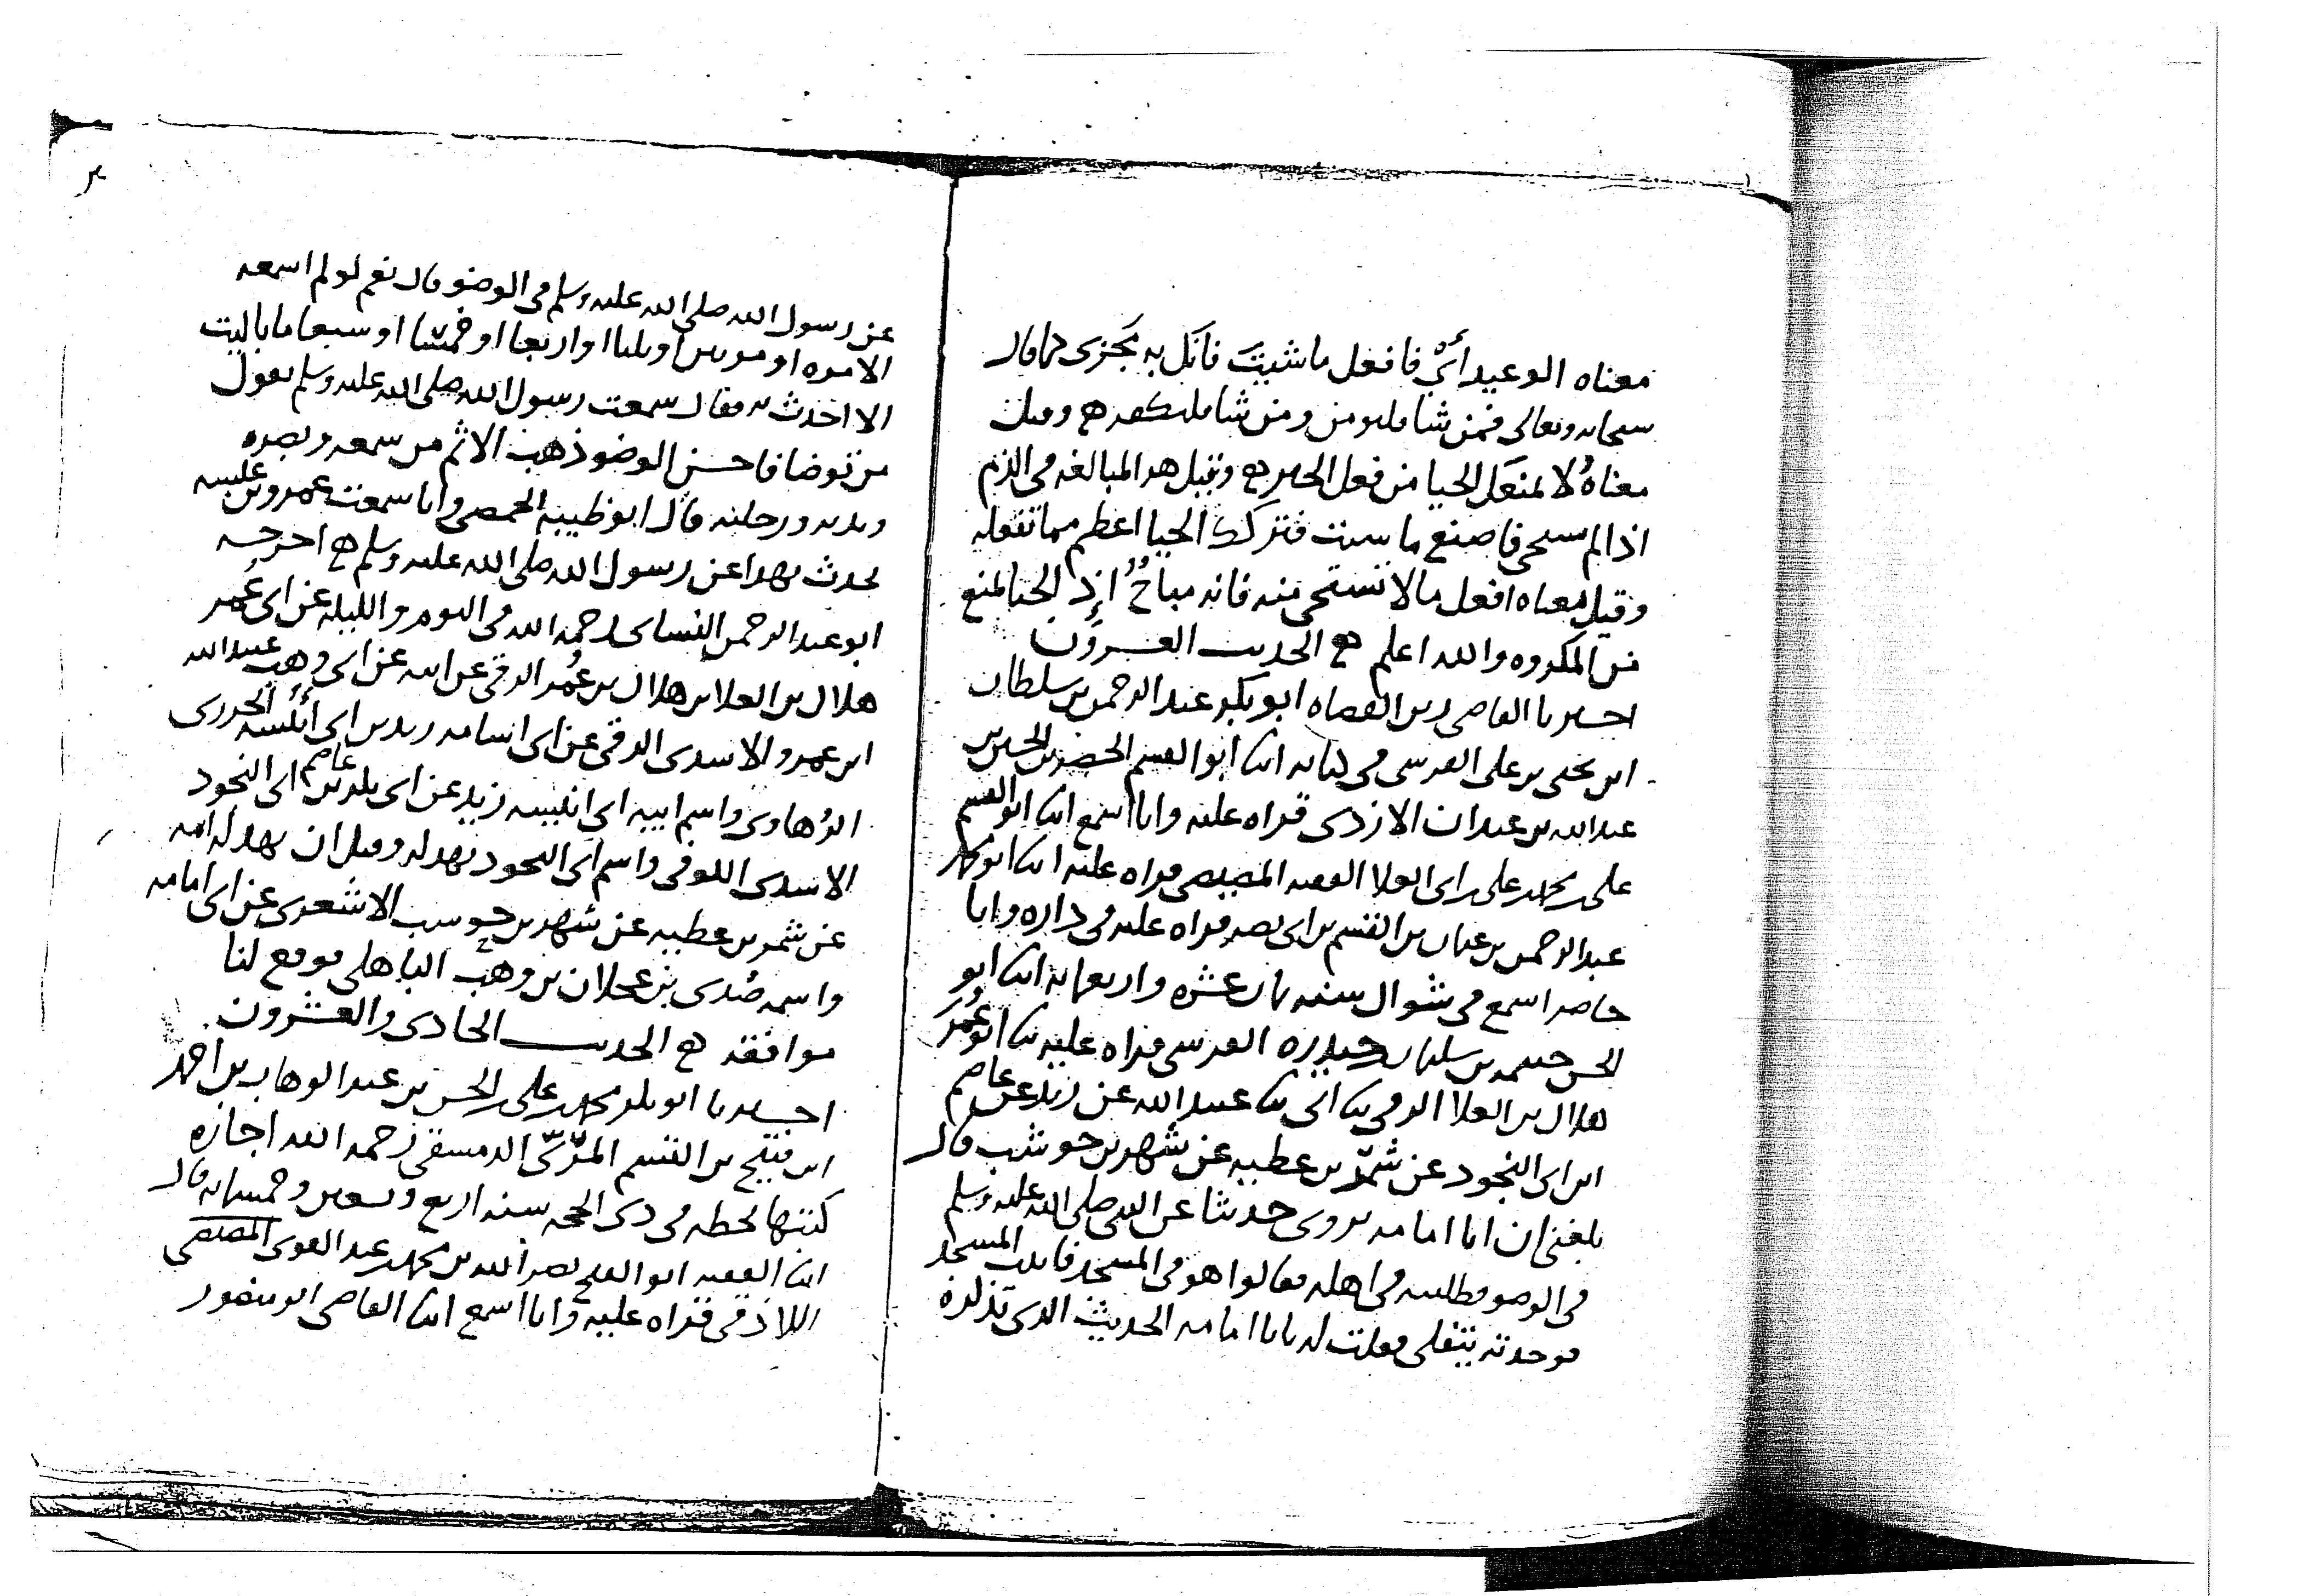 معناه الوعيد أي فافعل ما شيت فانك به تجزى كما قال
سبحانه وتعالى فمن شا فليومن ومن شا فليكفر ه وقيل
معناه لا يمنعك الحيا من فعل الخير ه وقيل هو المبالغه في الذم
اذا لم تستحي فاصنع ما شيت فتركك الحيا اعظم مما تفعله
وقيل معناه افعل ما لا تستحي منه فانه مباح اذ الحيا يمنع
من المكروه والله اعلم ه الحديث العشرون
اخبرنا القاضي زين القضاه ابو بكر عبد الرحمن بن سلطان
ابن يحيى بن علي القرشي في كتابه انبا ابو القسم الخضر بن الحسين بن
عبد الله بن عبدان الازدي قراه عليه وانا اسمع انبا ابو القسم
علي بن محمد بن علي بن ابي العلا الفقيه المصيصي قراه عليه انبا ابو محمد
عبد الرحمن بن عثمان بن القسم بن ابي نصر قراه عليه في داره وانا
حاضر اسمع في شوال سنه ثمان عشره واربعمايه انبا ابو
الحسن خيثمه بن سليمان بن حيدره القرشي قراه عليه ثنا ابو عمر
هلال بن العلا الرقي ثنا ابي ثنا عبيد الله عن زيد عن عاصم
ابن ابي النجود عن شمر بن عطيه عن شهر بن حوشب قال
بلغني ان ابا امامه يروي حديثا عن النبي صلى الله عليه وسلم
في الوضو فطلبته في اهله فقالوا هو في المسجد فاتيت المسجد
فوجدته يتفلى فقلت له يا ابا امامه الحديث الذي تذكره
عن رسول الله صلى الله عليه وسلم في الوضو قال نعم لو لم اسمعه
الا مره او مرتين او ثلثا او اربعا او خمسا او سبعا ما باليت
الا احدث به فقال سمعت رسول الله صلى الله عليه وسلم يقول
من توضا فاحسن الوضو ذهب الاثم من سمعه وبصره
ويديه ورجليه قال ابو ظبيه الحمصي وانا سمعت عمرو بن عبسه
يحدث بهذا عن رسول الله صلى الله عليه وسلم ه اخرجه
ابو عبد الرحمن النسائي رحمه الله في اليوم والليله عن ابي عمر
هلال بن العلا بن هلال بن عمر الرقي عن ابيه عن ابي وهب عبيد الله
ابن عمرو الاسدي الرقي عن ابي اسامه زيد بن ابي انيسه الجزري
الرهاوي واسم ابيه ابي انيسه زيد عن ابي بكر عاصم بن ابي النجود
الاسدي الكوفي واسم ابي النجود بهدله وقيل ان بهدله امه
عن شمر بن عطيه عن شهر بن حوشب الاشعري عن ابي امامه
واسمه صدي بن عجلان بن وهب الباهلي فوقع لنا
موافقه ه الحديث الحادي والعشرون
اخبرنا ابو بكر محمد بن علي بن الحسن بن عبد الوهاب بن احمد
ابن القسم المزكي الدمشقي رحمه الله اجازه
كتبها بخطه في ذي الحجه سنه اربع وتسعين وخمسمايه قال
انبا الفقيه ابو الفتح نصر الله بن محمد بن عبد القوي المصيصي
اللاذقي قراه عليه وانا اسمع انبا القاضي ابو منصور